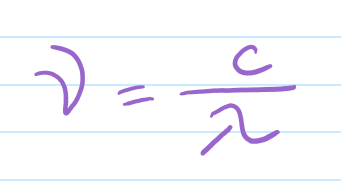 ν = c/λ